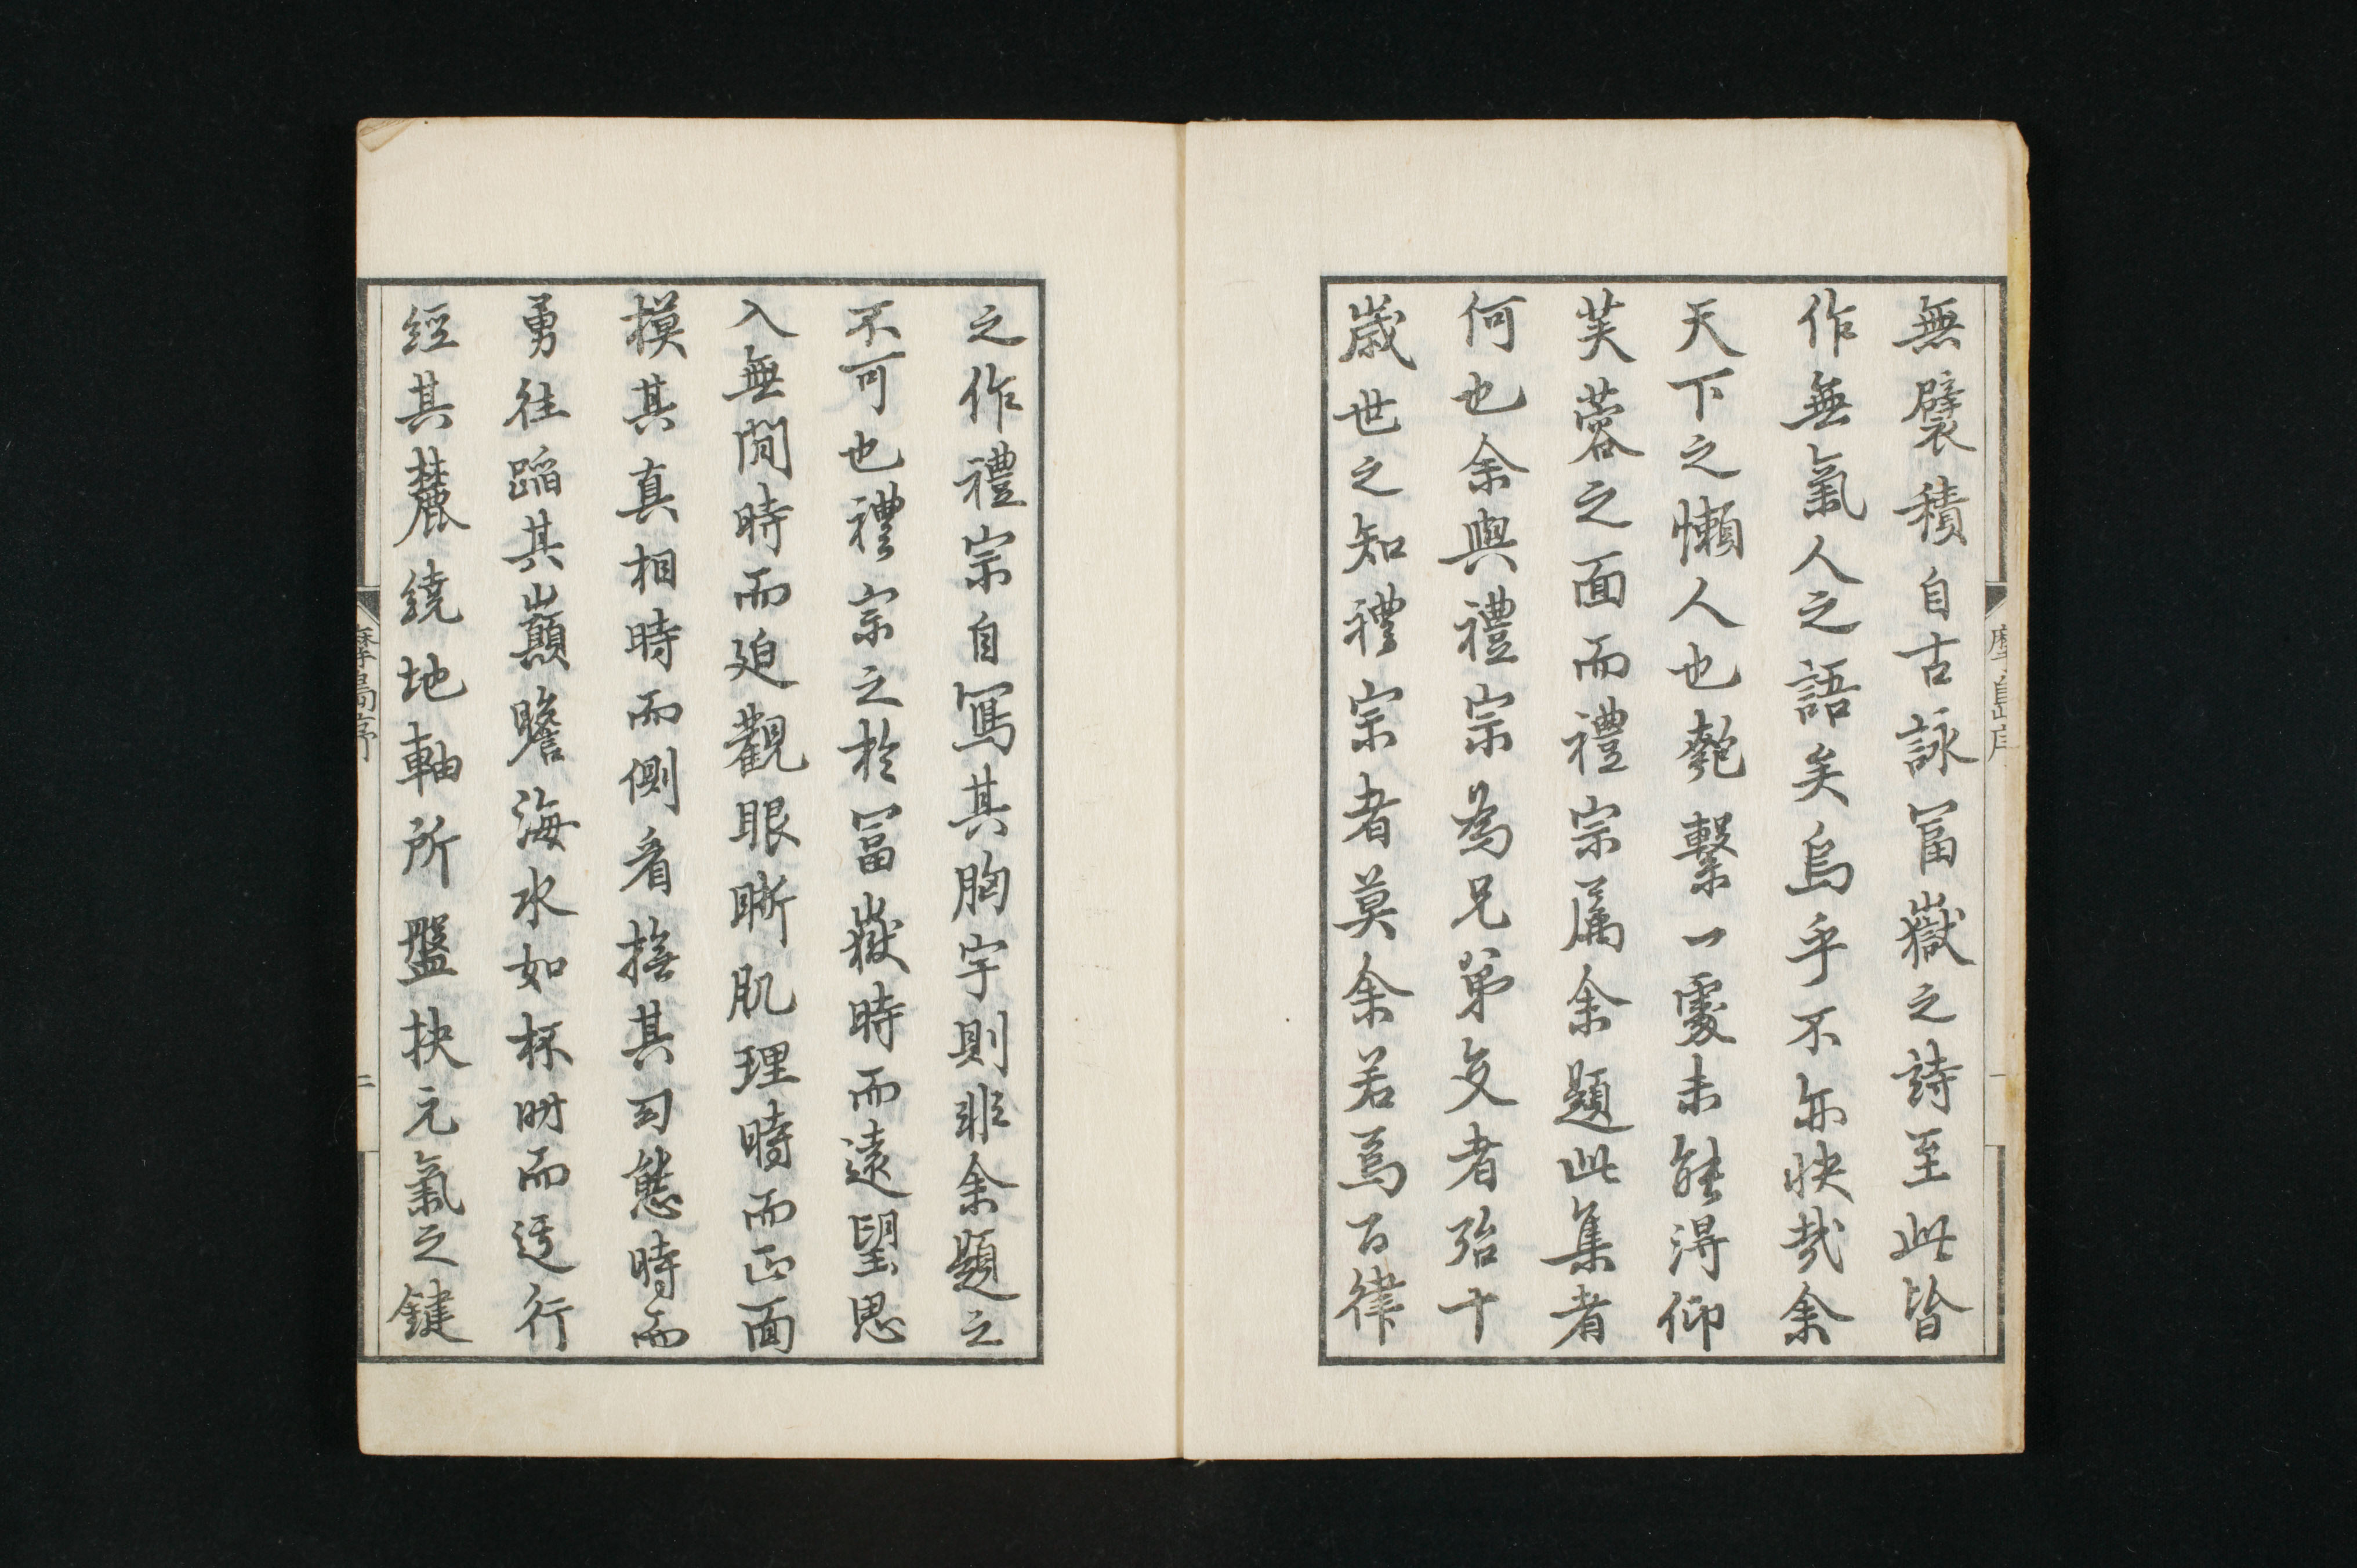 無襞積自古詠冨嶽之詩至此皆
作無氣人之語矣烏乎不亦快哉余
天下之懶人也匏繫一處未能得仰
芙蓉之面而禮宗属余題此集者
何也余與禮宗為兄弟交者殆十
歲世之知禮宗者莫余若焉百律
之作禮宗自寫其胸宇則非余題之
不可也禮宗之於冨嶽時而遠望思
入無間時而迫觀眼晰肌理時而正面
摸其真相時而側看捨其司態時而
勇往蹈其巓瞻海水如杯時而迂行
經其麓繞地軸所盤抉元氣之鍵
摩島序
一
摩島序
二